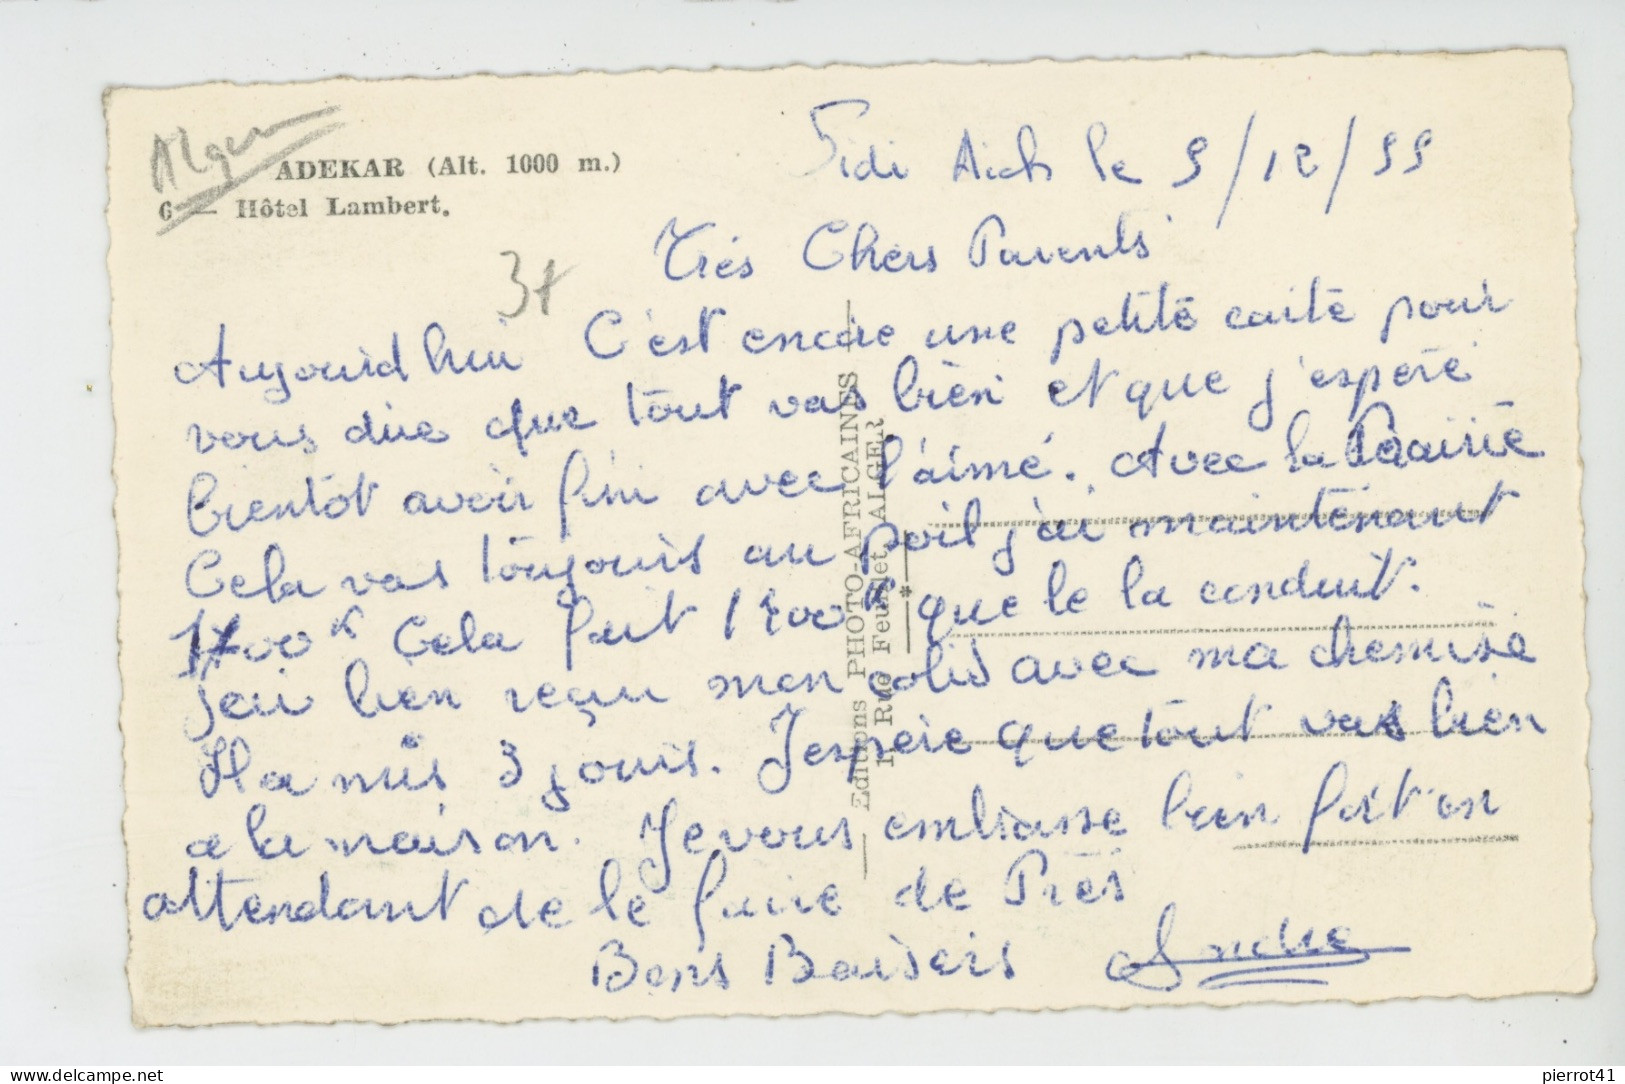 Alger
ADEKAR (Alt. 1000 m.)
6 — Hôtel Lambert.
Sidi Aich le 9/12/59
3+
Très Chers Parents
Aujourid hui C'est encore une petite carte pour
vous dire que tout vas bien et que j'espère
bientôt avoir fini avec l'aimé. Avec la Prairie
Cela vas toujours au poil j'ai maintenant
1700 k Cela fait 1700 k que le la conduit.
J'ai bien reçu mon colis avec ma chemise
Il a mis 3 jours. J'espère que tout vas bien
a la maison. Je vous embrasse bien fort en
attendant de le faire de Près
Bons Baisers André
Editions PHOTO-AFRICAINES
1, Rue Feuillet, ALGER
pierrot41